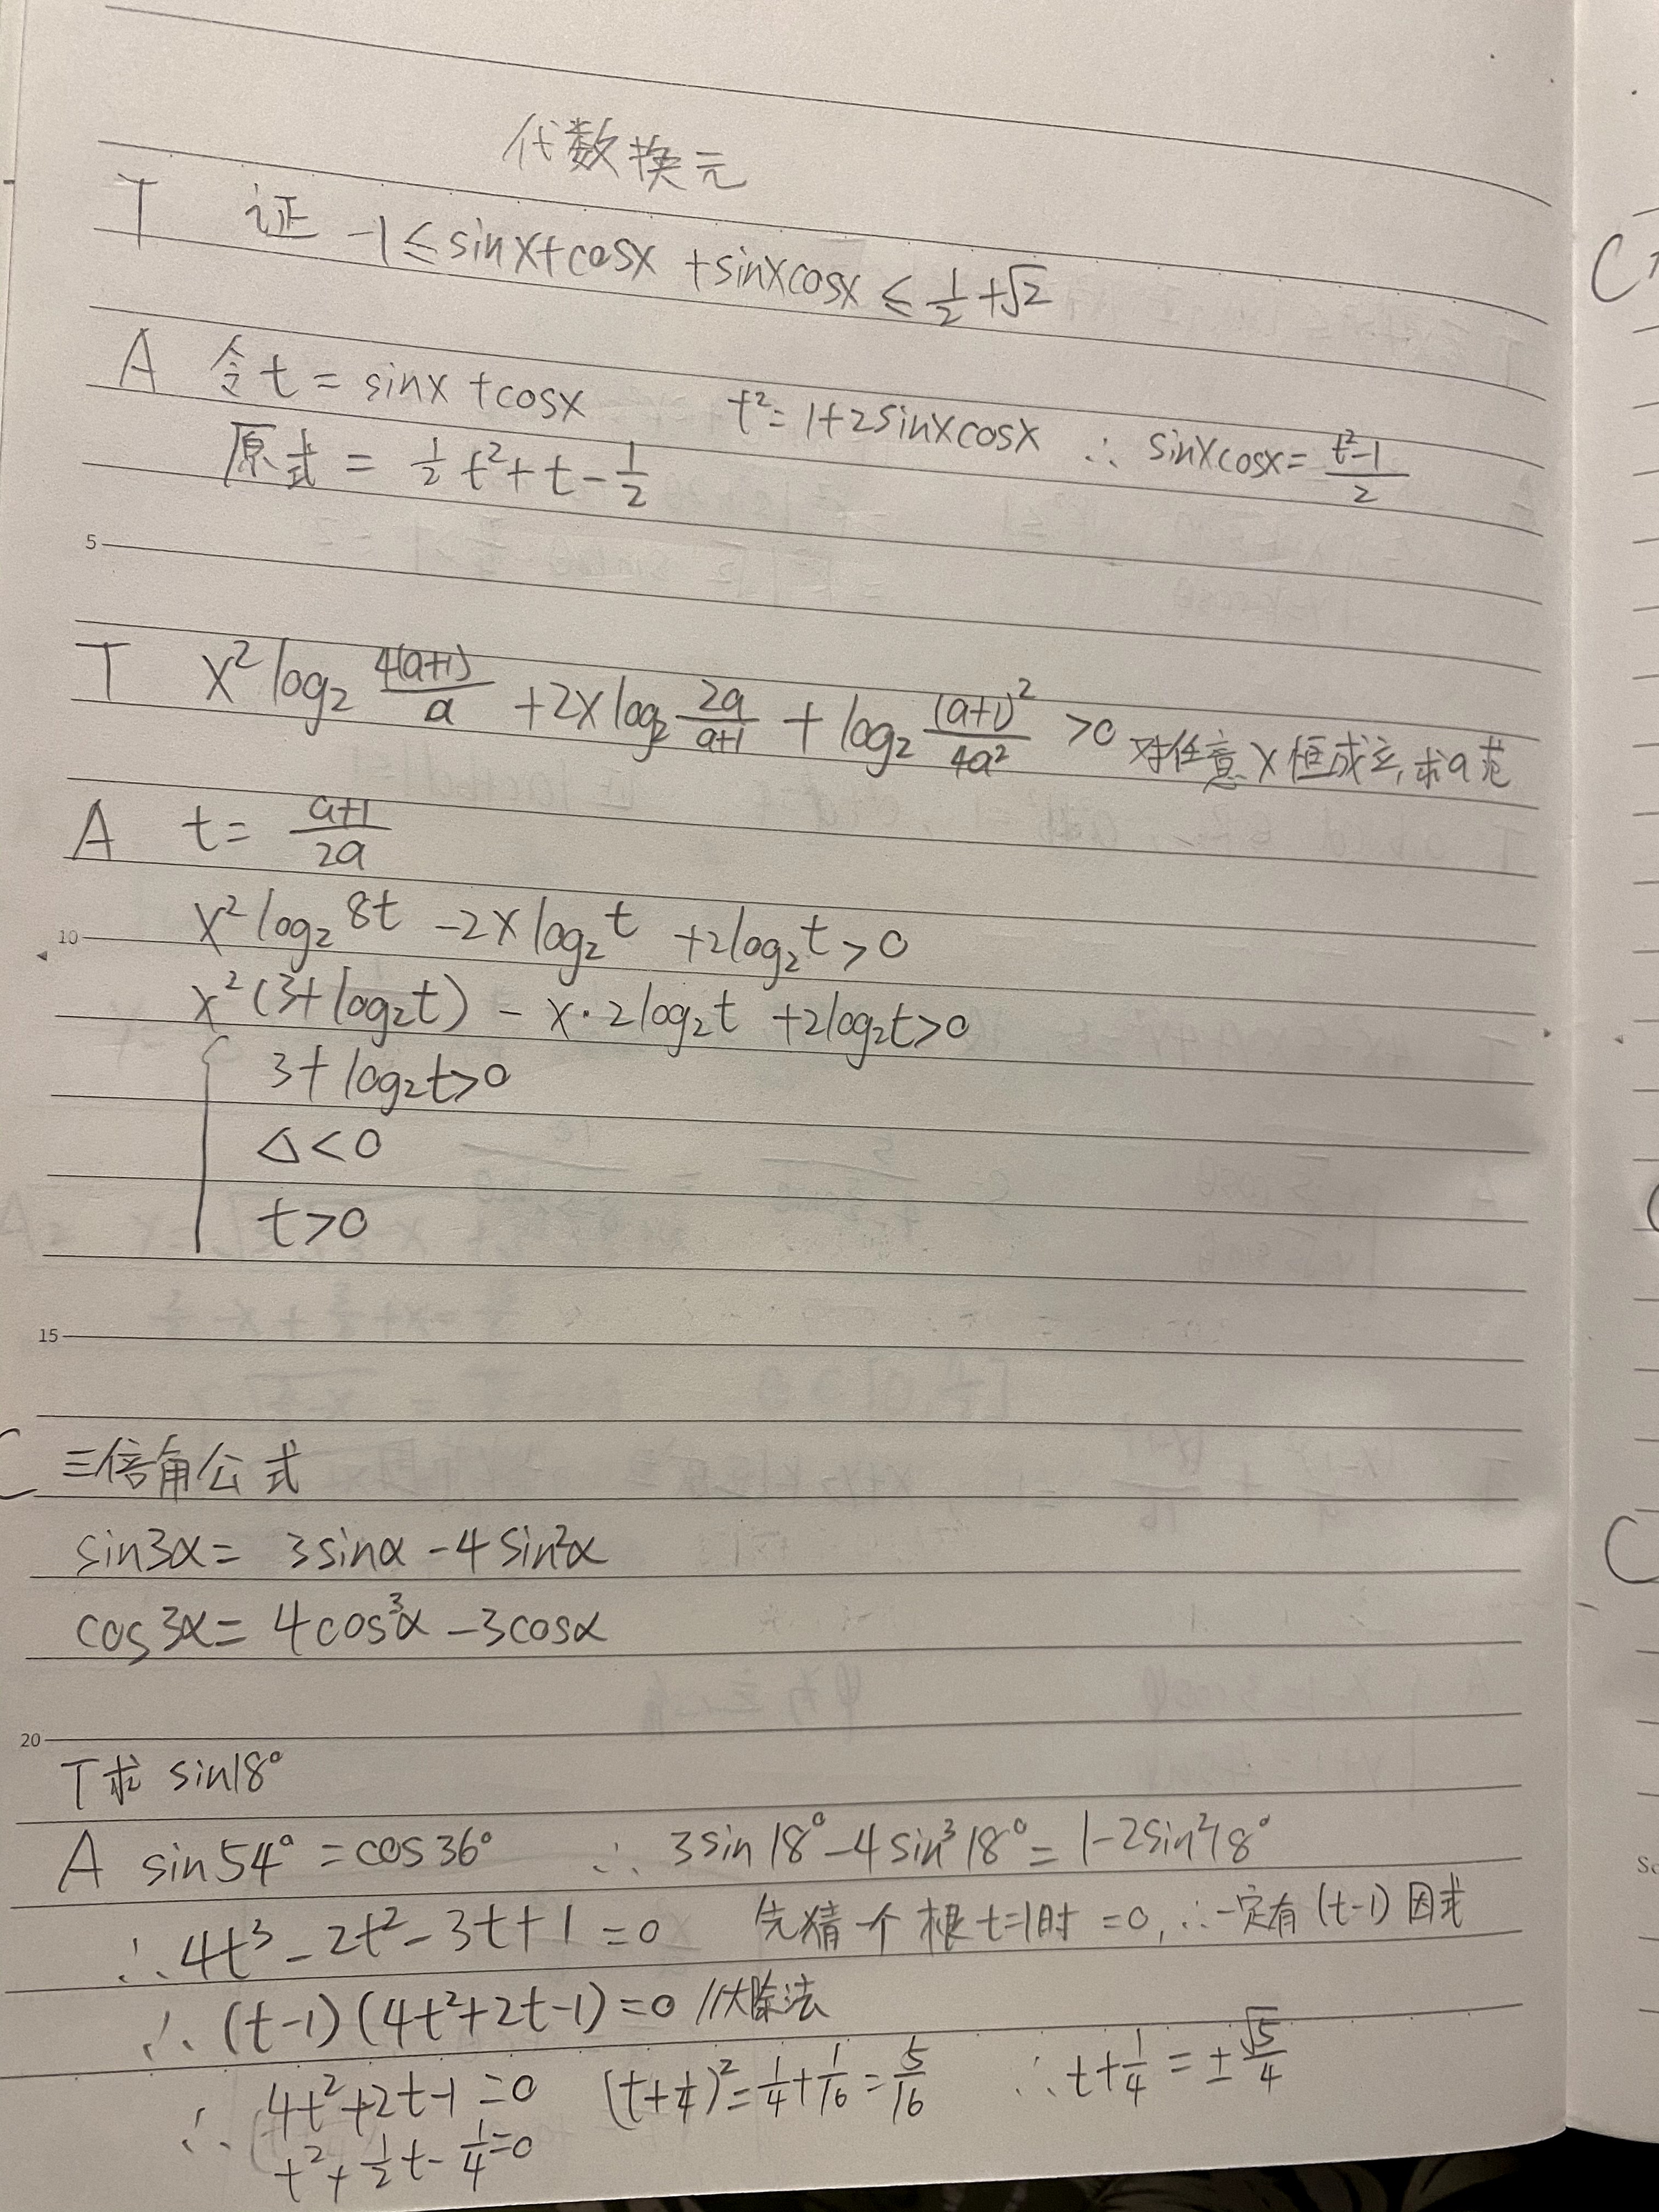 代数换元
T 证 -1≤sinx+cosx+sinxcosx≤1/2+√2
A 令t=sinx+cosx t²=1+2sinxcosx ∴ sinxcosx=(t²-1)/2
原式=1/2t²+t-1/2
5
T x²log₂4(a+1)/a+2xlog₂2a/(a+1)+log₂(a+1)²/4a²>0 对任意x恒成立,求a范
A t=(a+1)/2a
x²log₂8t-2xlog₂t+2log₂t>0
10
x²(3+log₂t)-x·2log₂t+2log₂t>0
3+log₂t>0
Δ<0
t>0
15
C 三倍角公式
sin3α=3sinα-4sin²α
cos3α=4cos³α-3cosα
20
T求 sin18°
A sin54°=cos36° ∴ 3sin18°-4sin³18°=1-2sin²18°
∴4t³-2t²-3t+1=0 先猜一个根t=1时=0,∴一定有(t-1)因式
∴(t-1)(4t²+2t-1)=0 //大除法
∴ 4t²+2t-1=0 (t+1/4)²=1/4+1/16=5/16 ∴t+1/4=±√5/4
t²+1/2t-1/4=0
C
C